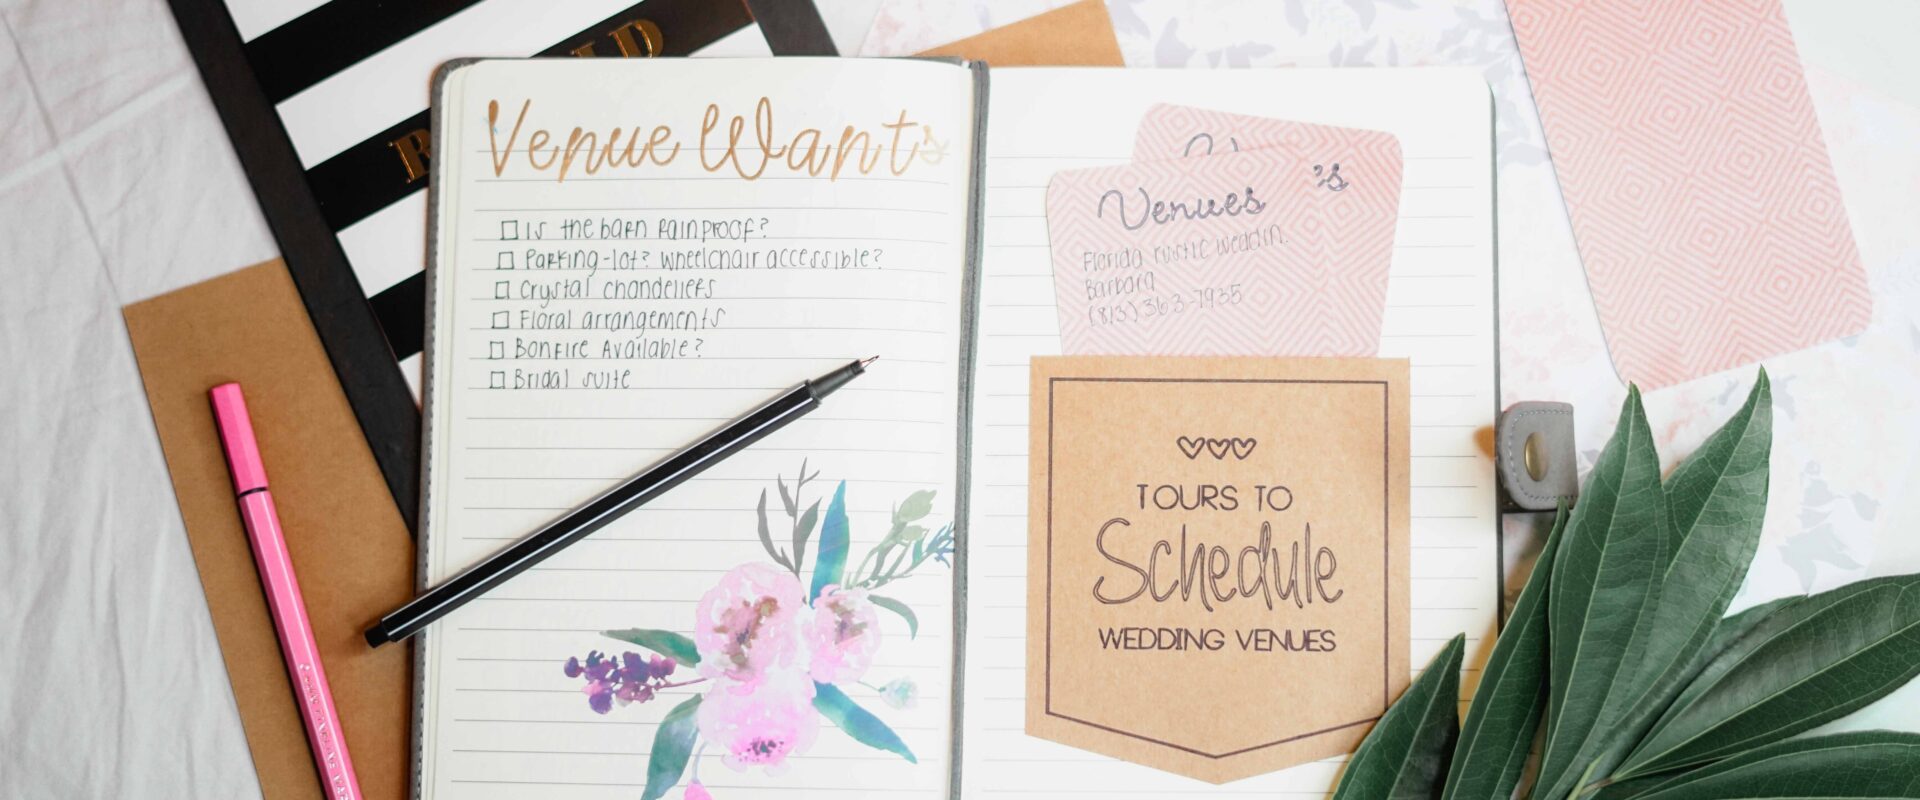 Venue Wants
Is the barn rainproof?
Parking-lot? Wheelchair accessible?
Crystal chandeliers
Floral arrangements
Bonfire Available?
Bridal suite
Venues 's
Florida rustic weddin.
Barbara
(813) 363-7935
TOURS TO
Schedule
WEDDING VENUES